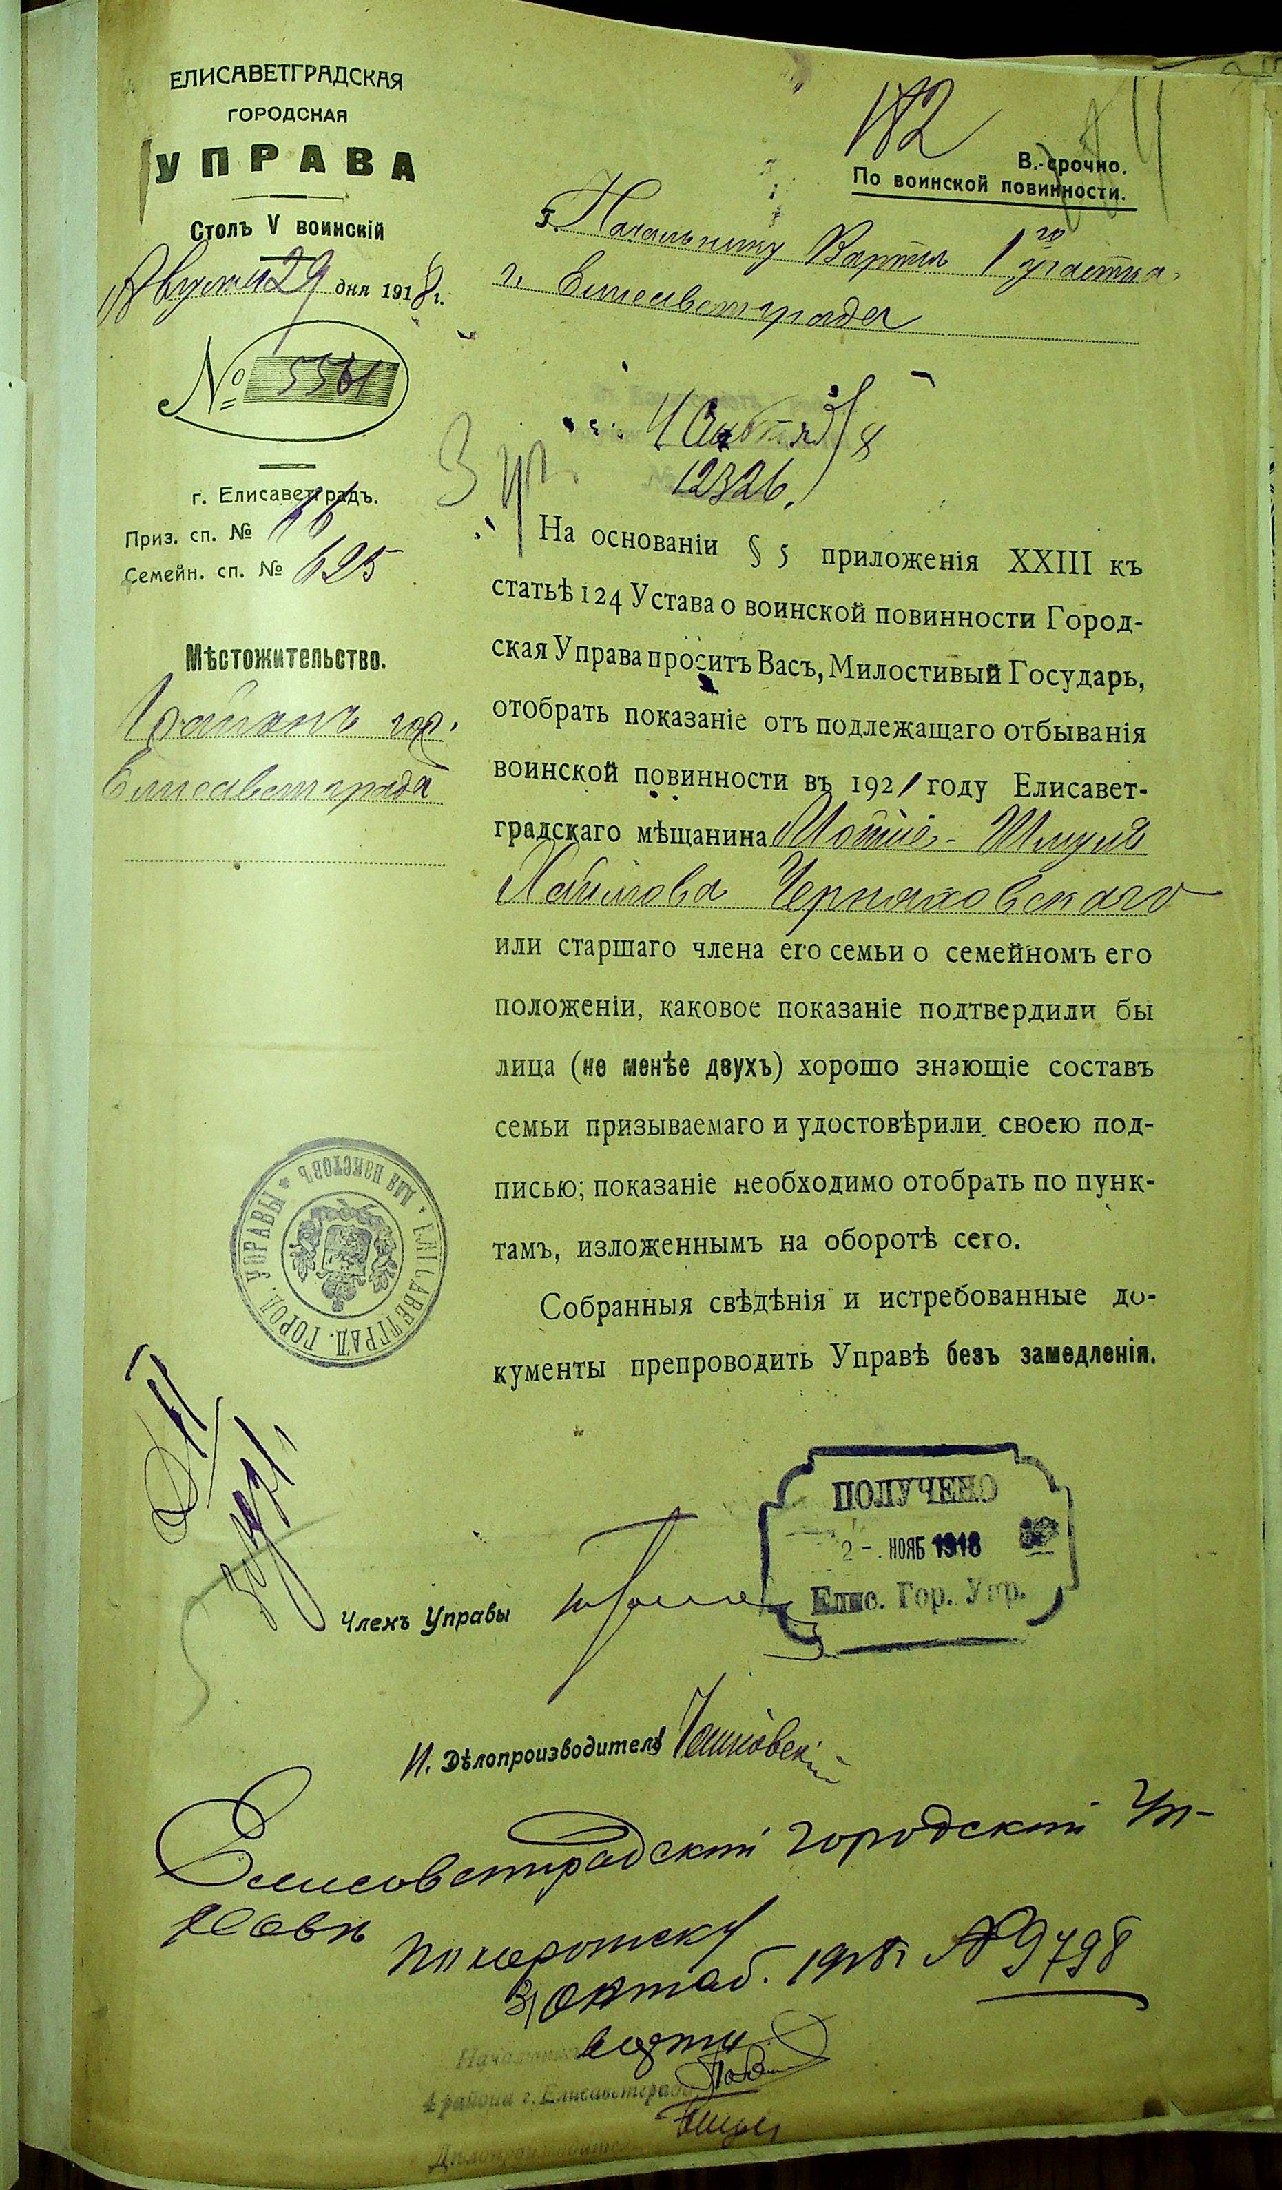 ЕЛИСАВЕТГРАДСКАЯ
ГОРОДСКАЯ
УПРАВА
Столъ V воинскій
Августа 29 дня 1918 г.
№ 5561
г. Елисаветградъ.
Приз. сп. № 66
Семейн. сп. № 625
Мѣстожительство.
1 районъ гор.
Елисаветграда
182
В.-срочно.
По воинской повинности.
Г. Начальнику Варты 1го участка
г. Елисаветграда
4 Октяб 8
12326.
На основаніи § 5 приложенія XXIII къ
статьѣ 124 Устава о воинской повинности Город-
ская Управа проситъ Васъ, Милостивый Государь,
отобрать показаніе отъ подлежащаго отбыванія
воинской повинности въ 1921 году Елисавет-
градскаго мѣщанина Мотіе-Шмуль
Хаимова Черняховскаго
или старшаго члена его семьи о семейномъ его
положеніи, каковое показаніе подтвердили бы
лица (не менѣе двухъ) хорошо знающіе составъ
семьи призываемаго и удостовѣрили своею под-
писью; показаніе необходимо отобрать по пунк-
тамъ, изложеннымъ на оборотѣ сего.
Собранныя свѣдѣнія и истребованные до-
кументы препроводить Управѣ безъ замедленія.
ЕЛИСАВЕТГРАД. ГОРОД. УПРАВЫ * Для пакетовъ *
ПОЛУЧЕНО
2 - НОЯБ 1918
Елис. Гор. Упр.
Членъ Управы
И. Дѣлопроизводителя
Елисаветградский городский Уп-
раве
31 Октяб. 1918 г. № 9798
Варты
Начальник
4 района г. Елисаветграда
Дѣлопроизводитель